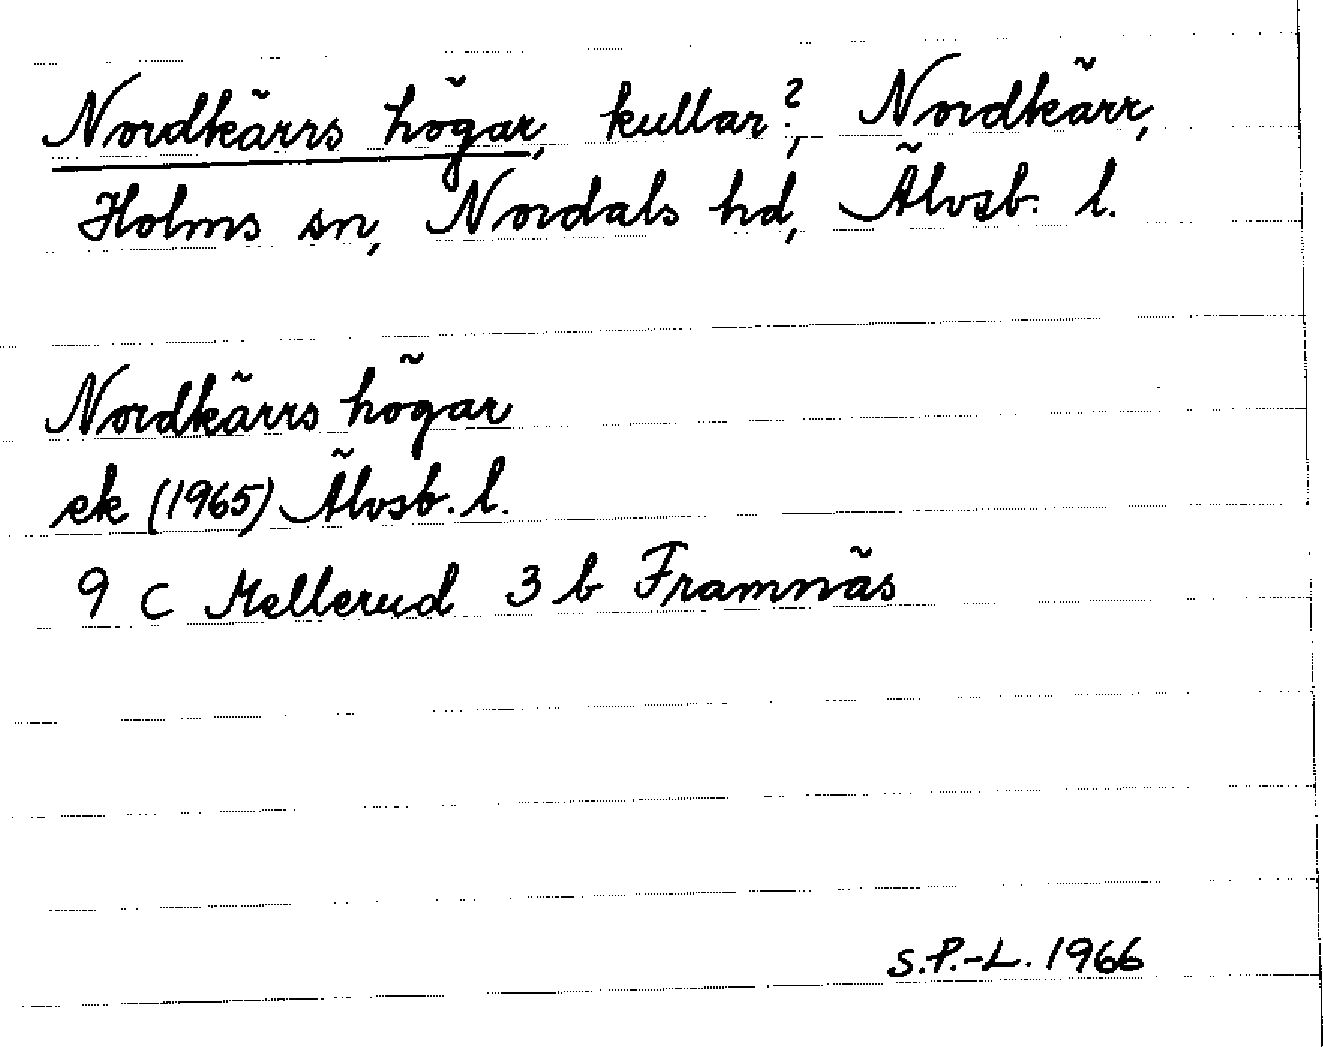 Nordkärrs högar, kullar?, Nordkärr,
Holms sn, Nordals hd, Älvsb. l.
Nordkärrs högar
ek (1965) Älvsb. l.
9 C Mellerud 3 b Framnäs
S.P.-L. 1966